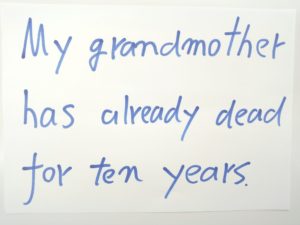 My grandmother
has already dead
for ten years.